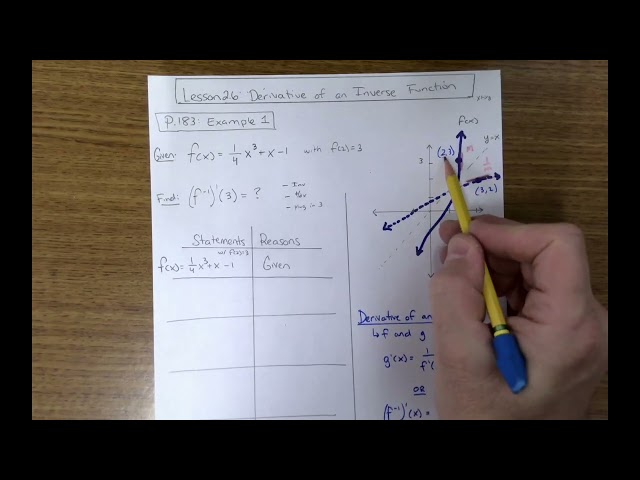 Lesson 26: Derivative of an Inverse Function
P.183: Example 1
Given: f(x) = 1/4 x³ + x - 1 with f(2) = 3
Find: (f⁻¹)'(3) = ?
- Inv
- plug in 3
Statements Reasons
w/ f(2)=3
f(x) = 1/4 x³ + x - 1 Given
f(x)
y=x
(2,3)
3
(3,2)
Derivative of an
↳ f and g
g'(x) = 1
f'(
OR
(f⁻¹)'(x) =